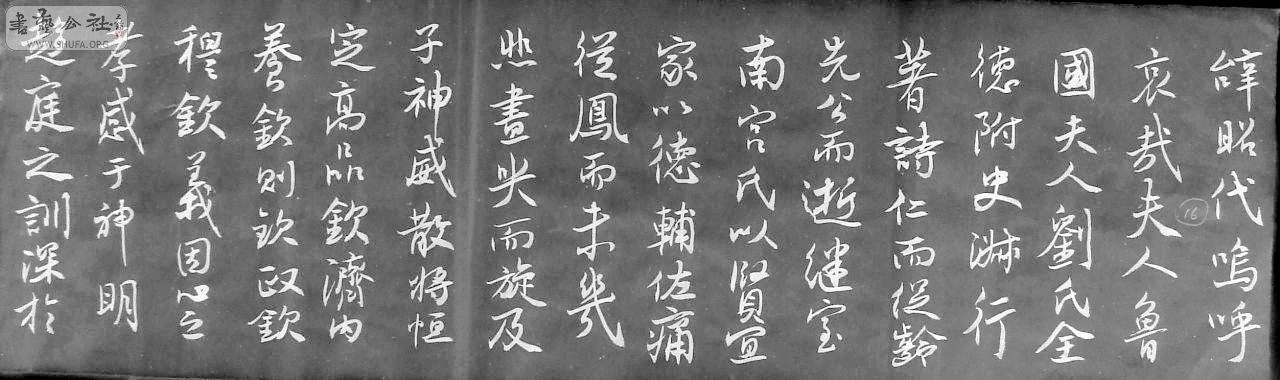 辭昭代嗚呼
哀哉夫人魯
國夫人劉氏全
德附史淑行
著詩仁而促齡
先公而逝繼室
南宮氏以賢宜
家以德輔佐痛
從鳳而未幾
悲晝哭而旋及
子神威散將恒
定高品欽濟內
養欽則欽政欽
穆欽義因心之
孝感于神明
趍庭之訓深於
書藝公社
WWW.SHUFA.ORG
16